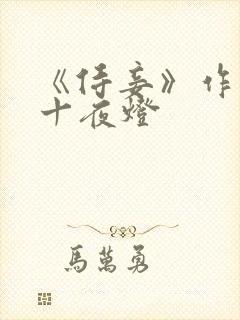 《侍妾》作
十夜燈
馬萬勇